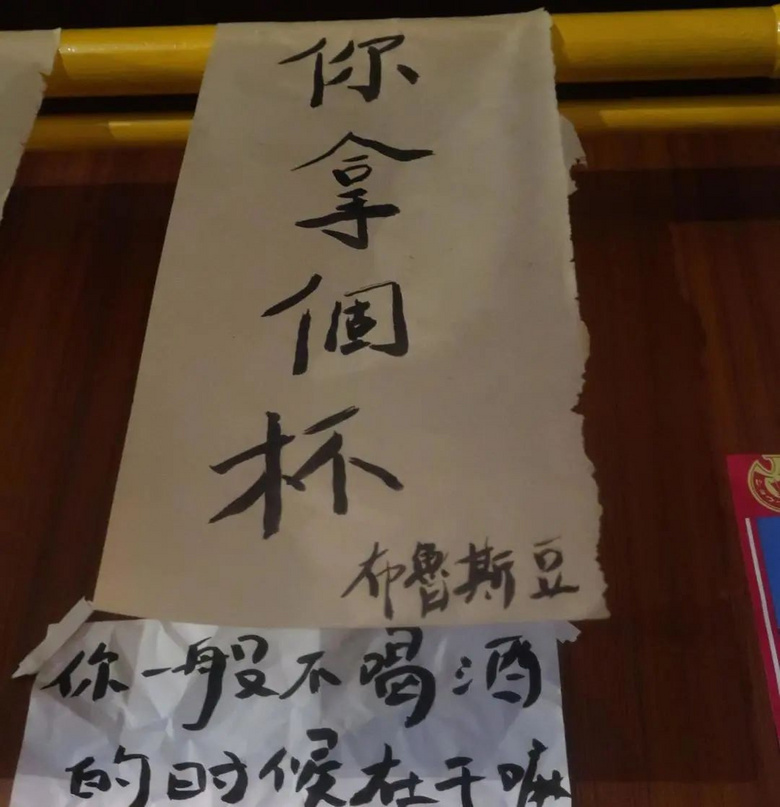 你拿個杯
布魯斯豆
你一般不喝酒
的时候在干嘛